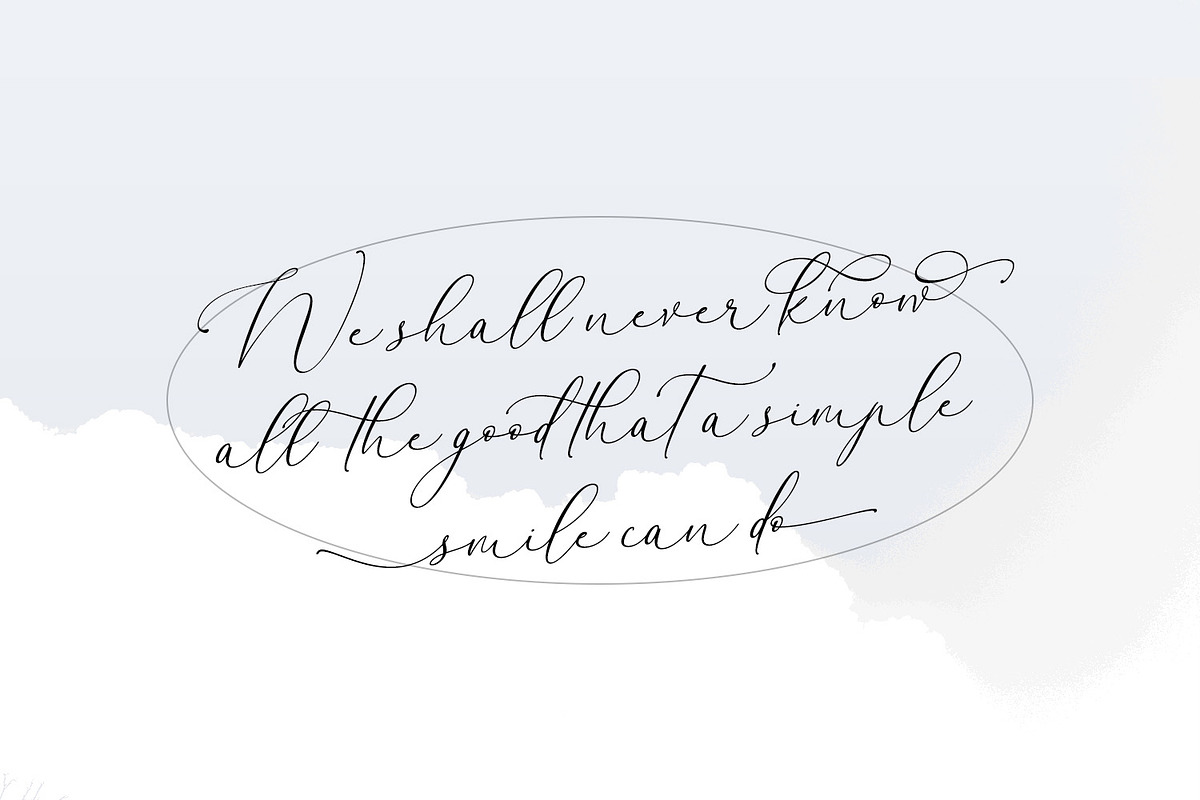 We shall never know
all the good that a simple
smile can do